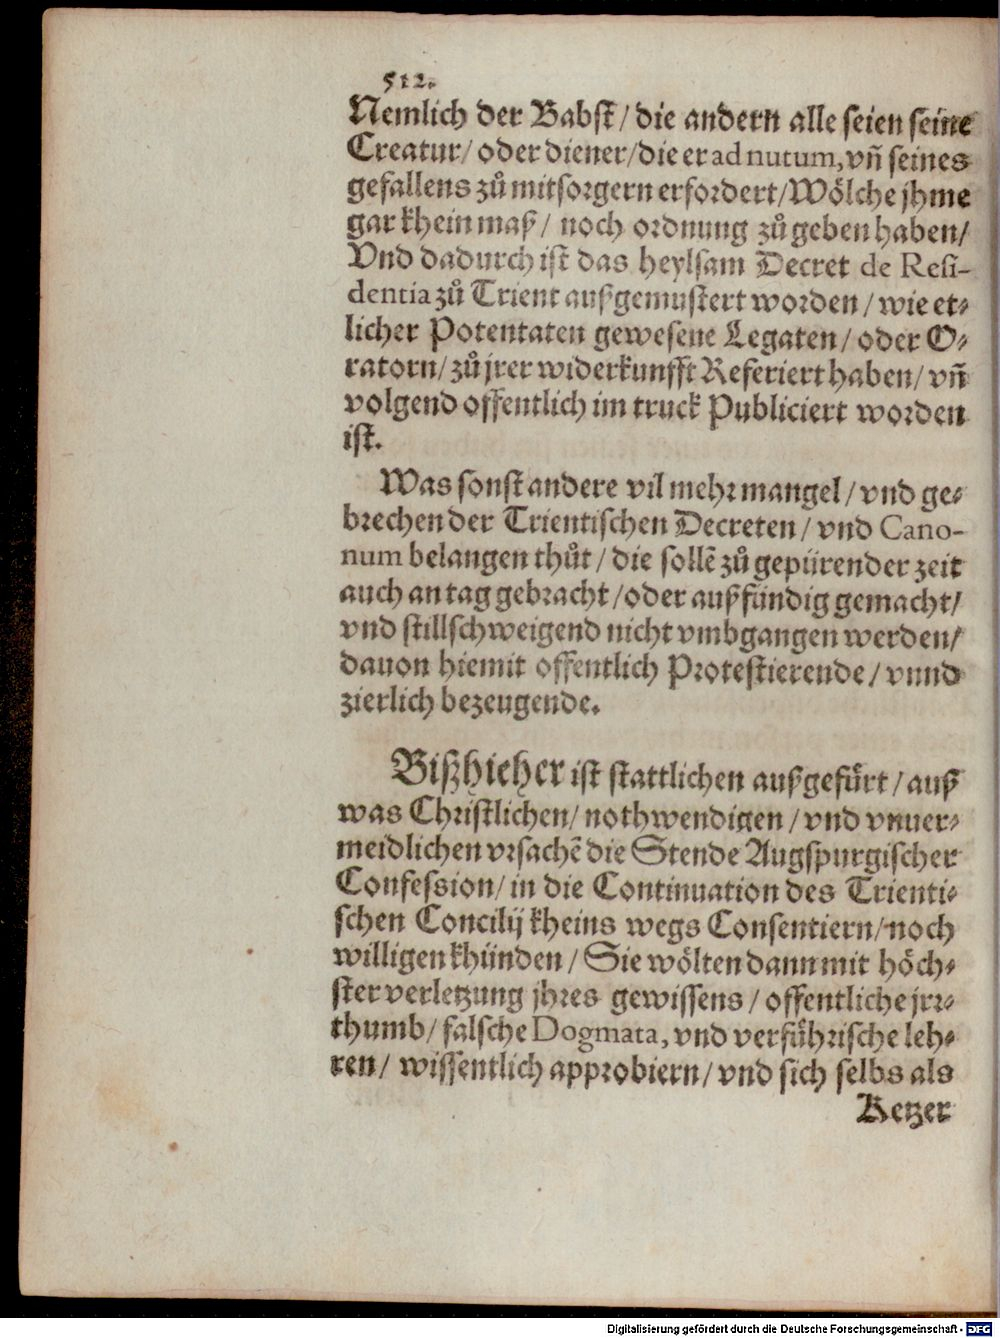 512.
Nemlich der Babst / die andern alle seien seine
Creatur / oder diener / die er ad nutum, vñ seines
gefallens zů mitsorgern erfordert / Wölche jhme
gar khein maß / noch ordnung zů geben haben /
Vnd dadurch ist das heylsam Decret de Resi-
dentia zů Trient außgemustert worden / wie et-
licher Potentaten gewesene Legaten / oder O-
ratorn / zů jrer widerkunfft Referiert haben / vñ
volgend offentlich im truck Publiciert worden
ist.
Was sonst andere vil mehr mangel / vnd ge-
brechen der Trientischen Decreten / vnd Cano-
num belangen thůt / die sollē zů gepürender zeit
auch an tag gebracht / oder außfündig gemacht /
vnd stillschweigend nicht vmbgangen werden /
dauon hiemit offentlich Protestierende / vnnd
zierlich bezeugende.
Bißhieher ist stattlichen außgefürt / auß
was Christlichen / nothwendigen / vnd vnuer-
meidlichen vrsachē die Stende Augspurgischer
Confession / in die Continuation des Trienti-
schen Concilij kheins wegs Consentiern / noch
willigen khünden / Sie wölten dann mit höch-
ster verletzung jhres gewissens / offentliche jrr-
thumb / falsche Dogmata, vnd verführische leh-
ren / wissentlich approbiern / vnd sich selbs als
Ketzer
Digitalisierung gefördert durch die Deutsche Forschungsgemeinschaft - DFG